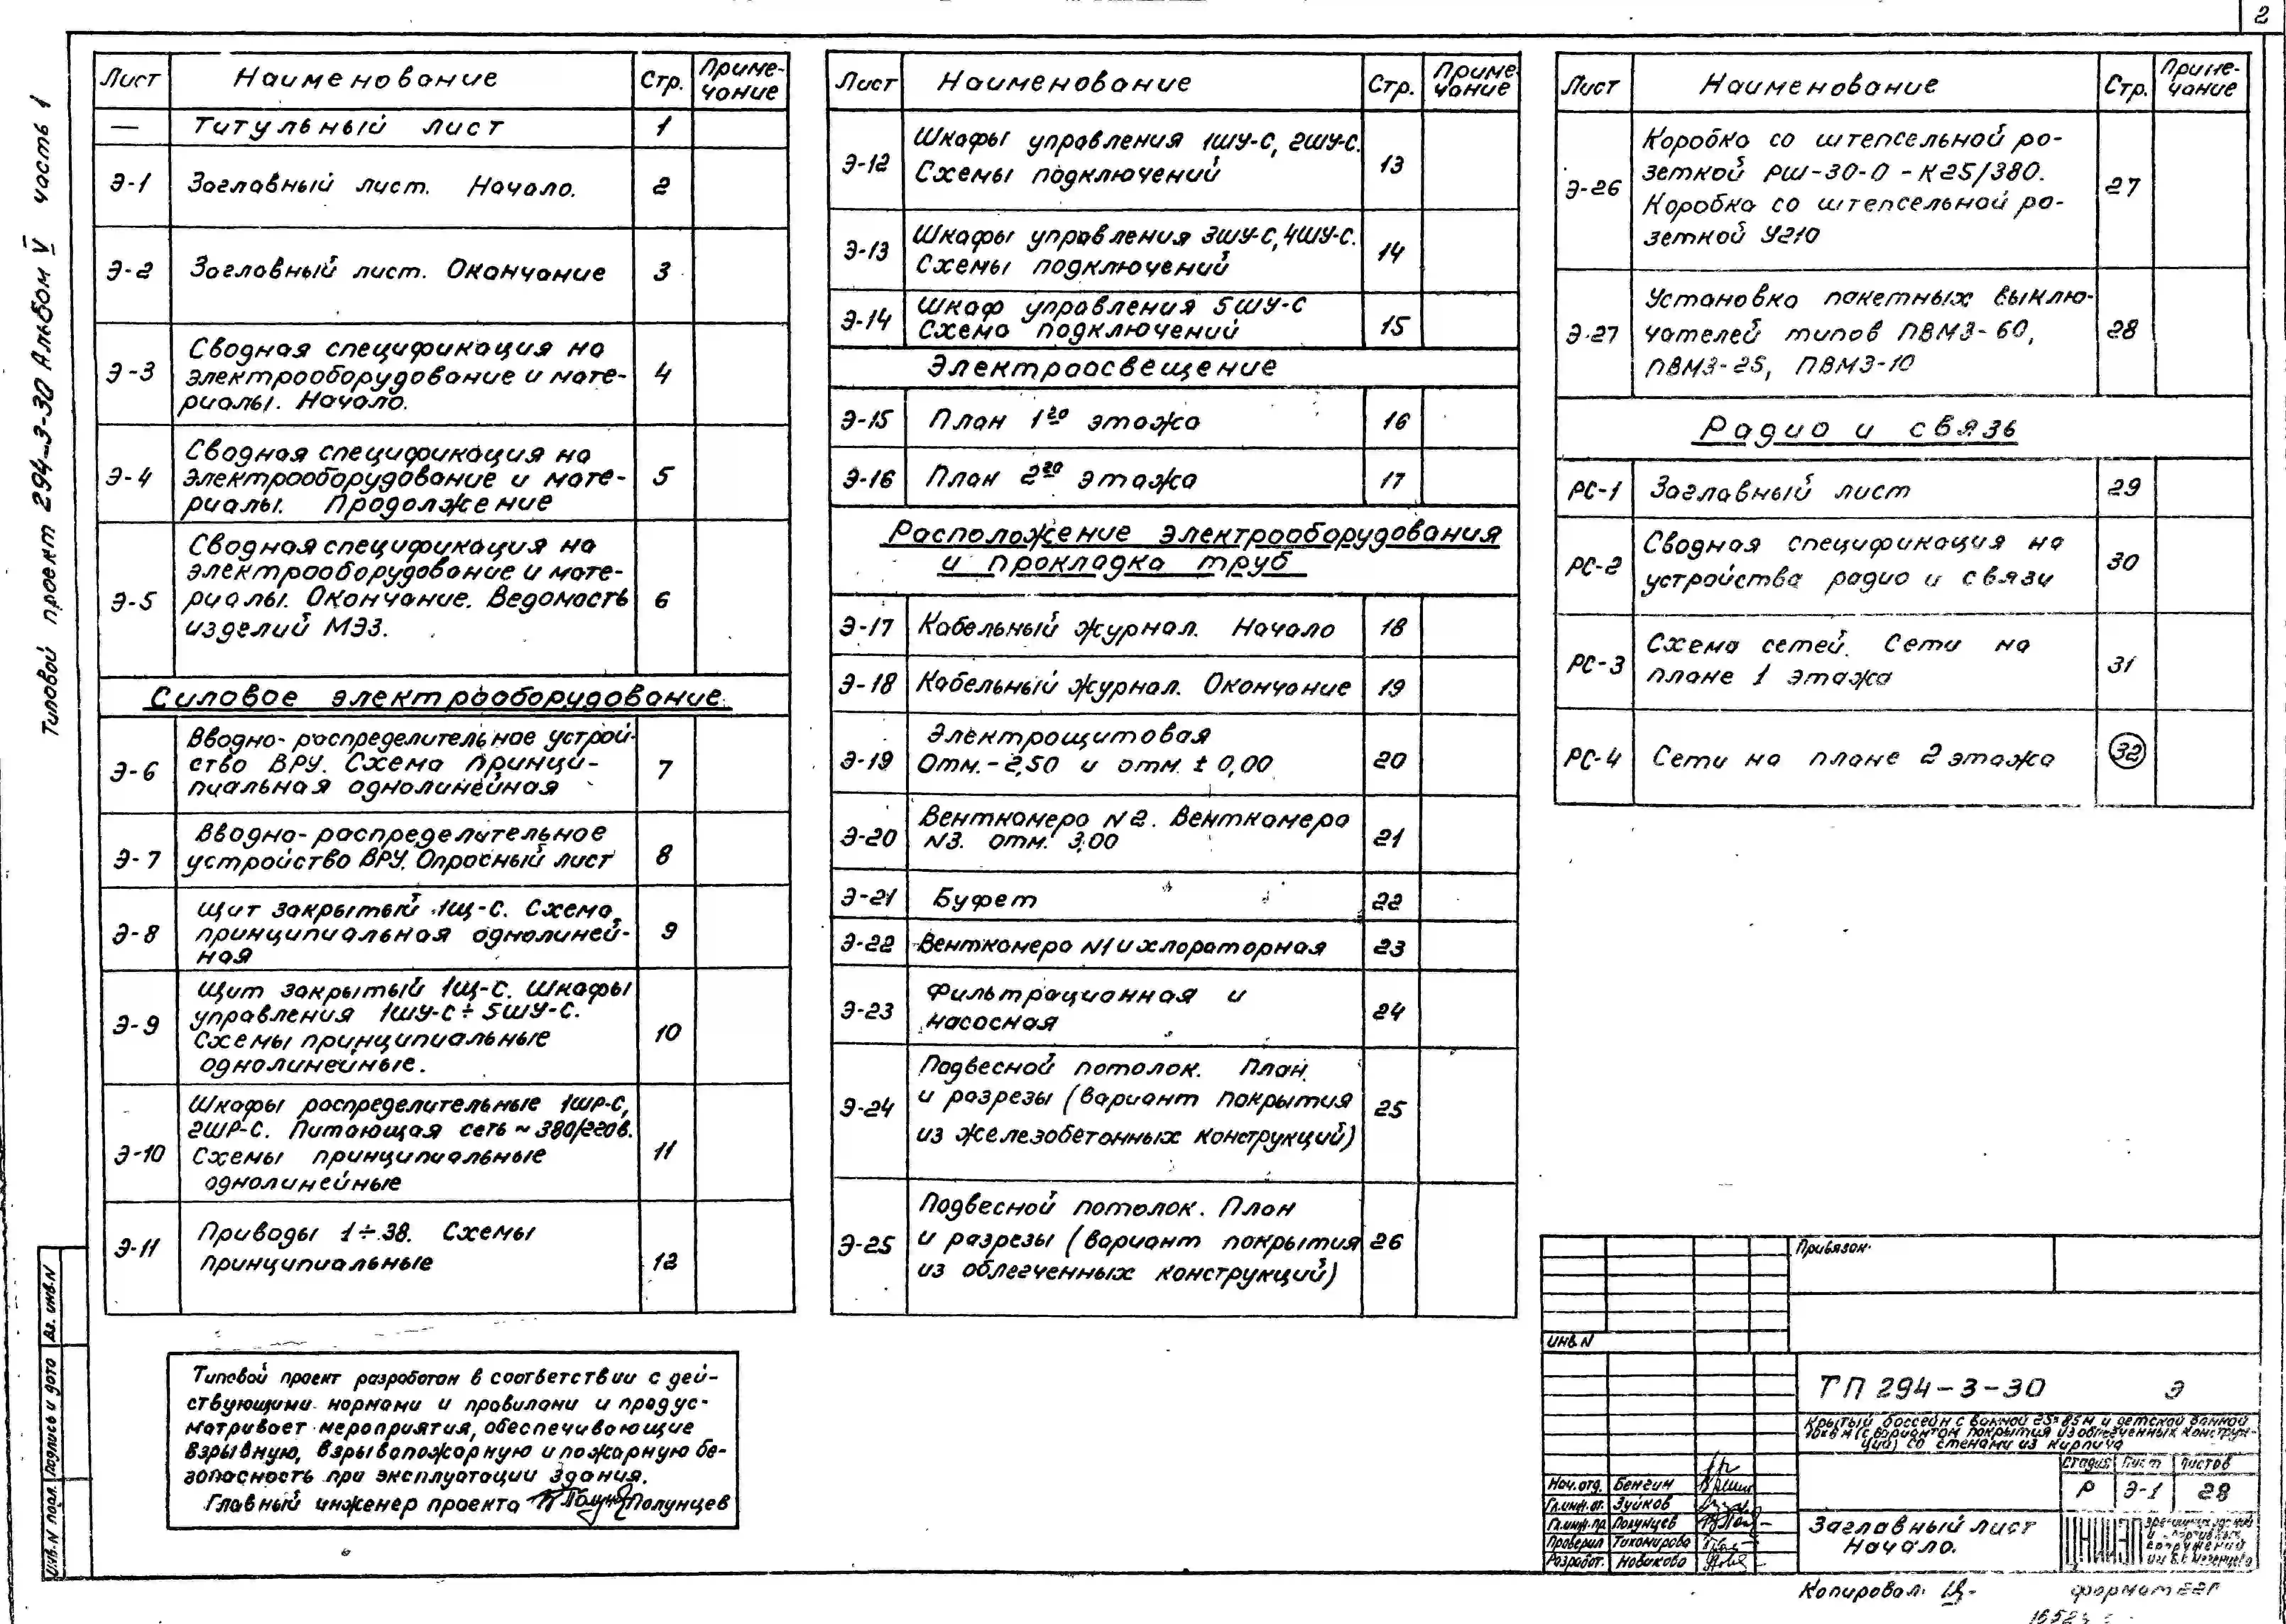 2
Типовой проект 294-3-30 Альбом V часть 1
Лист Наименование Стр. Приме-
чание
— Титульный лист 1
Э-1 Заглавный лист. Начало. 2
Э-2 Заглавный лист. Окончание 3
Э-3 Сводная спецификация на
электрооборудование и мате-
риалы. Начало. 4
Э-4 Сводная спецификация на
электрооборудование и мате-
риалы. Продолжение 5
Э-5 Сводная спецификация на
электрооборудование и мате-
риалы. Окончание. Ведомость
изделий МЭЗ. 6
Силовое электрооборудование.
Э-6 Вводно-распределительное устрой-
ство ВРУ. Схема принци-
пиальная однолинейная 7
Э-7 Вводно-распределительное
устройство ВРУ. Опросный лист 8
Э-8 Щит закрытый 1Щ-С. Схема
принципиальная однолиней-
ная 9
Э-9 Щит закрытый 1Щ-С. Шкафы
управления 1ШУ-С÷5ШУ-С.
Схемы принципиальные
однолинейные. 10
Э-10 Шкафы распределительные 1ШР-С,
2ШР-С. Питающая сеть ~380/220в.
Схемы принципиальные
однолинейные 11
Э-11 Приводы 1÷38. Схемы
принципиальные 12
Лист Наименование Стр. Приме-
чание
Э-12 Шкафы управления 1ШУ-С, 2ШУ-С.
Схемы подключений 13
Э-13 Шкафы управления 3ШУ-С, 4ШУ-С.
Схемы подключений 14
Э-14 Шкаф управления 5ШУ-С
Схема подключений 15
Электроосвещение
Э-15 План 1го этажа 16
Э-16 План 2го этажа 17
Расположение электрооборудования
и прокладка труб
Э-17 Кабельный журнал. Начало 18
Э-18 Кабельный журнал. Окончание 19
Э-19 Электрощитовая
Отм.-2,50 и отм. ± 0,00 20
Э-20 Венткамера N2. Венткамера
N3. отм. 3,00 21
Э-21 Буфет 22
Э-22 Венткамера N1 и хлораторная 23
Э-23 Фильтрационная и
насосная 24
Э-24 Подвесной потолок. План
и разрезы (вариант покрытия
из железобетонных конструкций) 25
Э-25 Подвесной потолок. План
и разрезы (вариант покрытия
из облегченных конструкций) 26
Лист Наименование Стр. Приме-
чание
Э-26 Коробка со штепсельной ро-
зеткой РШ-30-0-К25/380.
Коробка со штепсельной ро-
зеткой У210 27
Э-27 Установка пакетных выклю-
чателей типов ПВМ3-60,
ПВМ3-25, ПВМ3-10 28
Радио и связь
РС-1 Заглавный лист 29
РС-2 Сводная спецификация на
устройства радио и связи 30
РС-3 Схема сетей. Сети на
плане 1 этажа 31
РС-4 Сети на плане 2 этажа 32
Типовой проект разработан в соответствии с дей-
ствующими нормами и правилами и предус-
матривает мероприятия, обеспечивающие
взрывную, взрывопожарную и пожарную бе-
зопасность при эксплуатации здания.
Главный инженер проекта Полунцев
Инв.N подл. Подпись и дата Вз. инв.N
Привязан:
Инв.N
ТП 294-3-30 Э
Крытый бассейн с ванной 25×8,5м и детской ванной
10×6м (с вариантом покрытия из облегченных конструк-
ций) со стенами из кирпича
Стадия Лист Листов
Р Э-1 28
Нач.отд. Бенгин
Гл.инж.от. Зуйков
Гл.инж.пр. Полунцев
Проверил Тихомирова
Разработ. Новикова
Заглавный лист
Начало.
сооружений
им. Б.С. Мезенцева
Копировал: формат 22Г